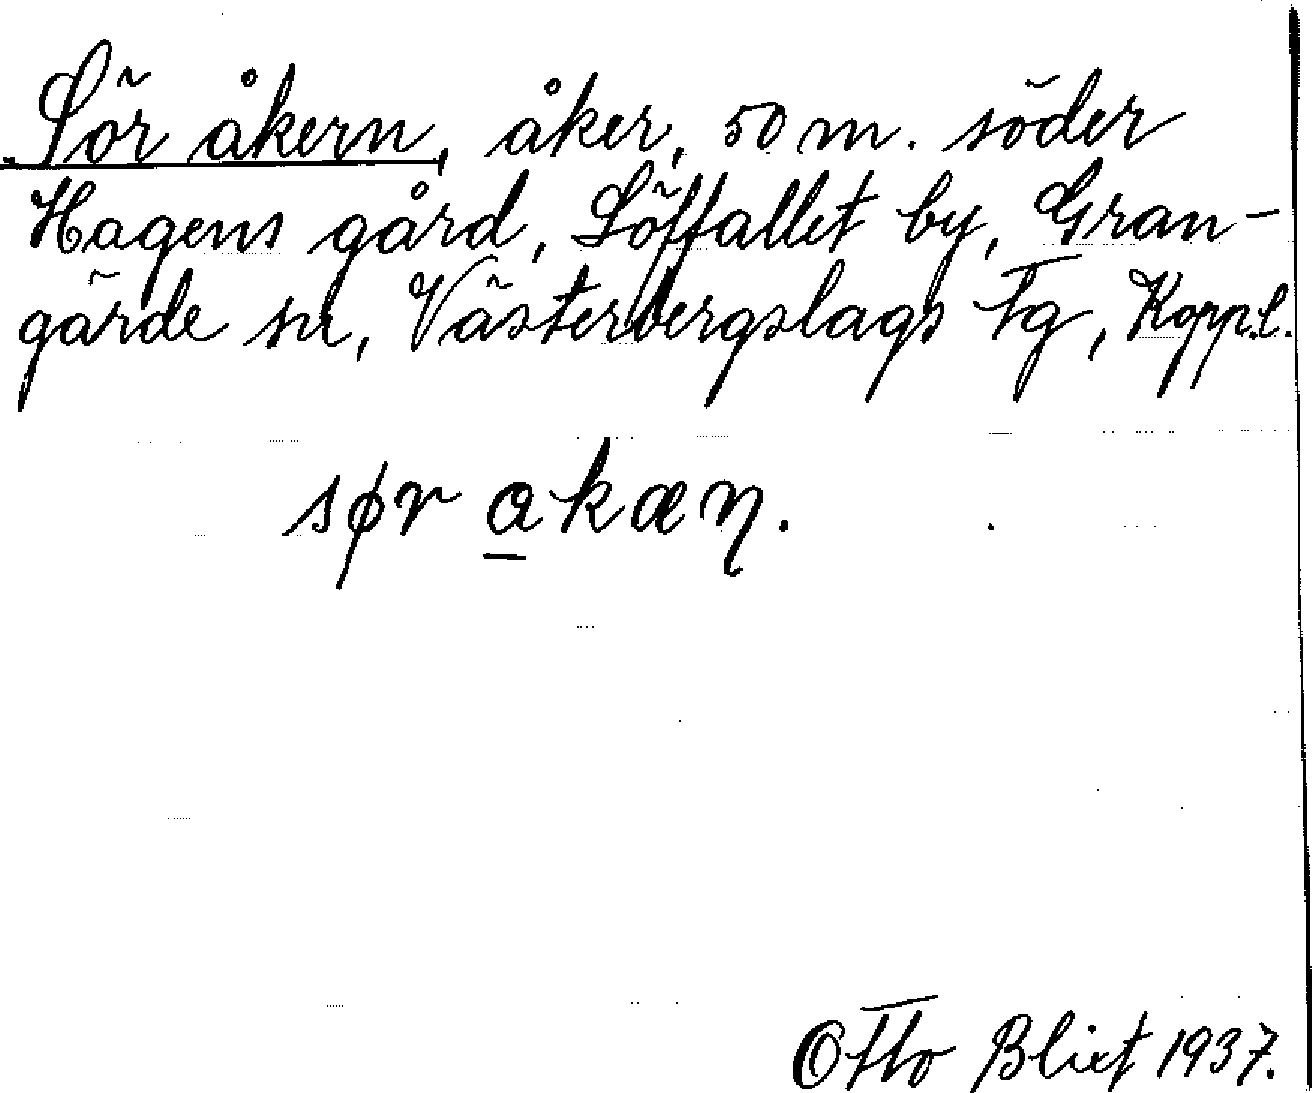 Sör åkern, åker, 50 m. söder
Hagens gård, Löffallet by, Gran-
gärde sn, Västerbergslags Tg, Kopp.l.
sør a̲kæŋ.
Otto Blixt 1937.